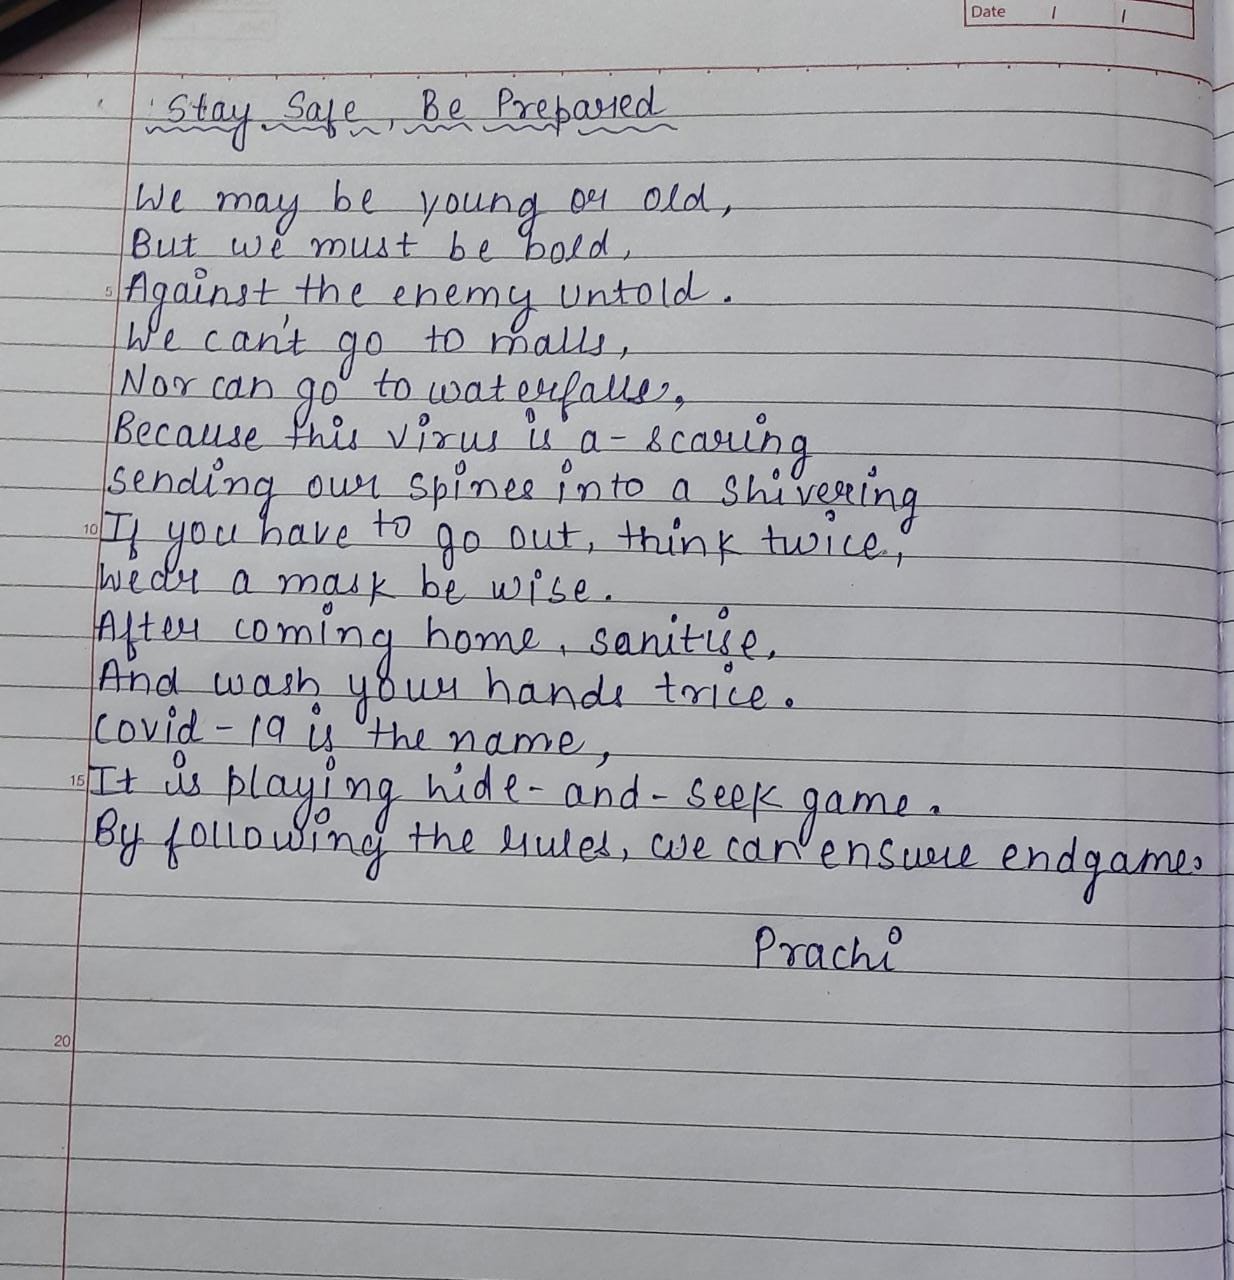 Date / /
Stay Safe, Be Prepared
We may be young or old,
But we must be bold,
5 Against the enemy untold.
We can't go to malls,
Nor can go to waterfalls,
Because this virus is a-scaring
sending our spines into a shivering
10 If you have to go out, think twice,
Wear a mask be wise.
After coming home, sanitise,
And wash your hands trice.
Covid-19 is the name,
15 It is playing hide-and-seek game.
By following the rules, we can ensure endgame.
Prachi
20